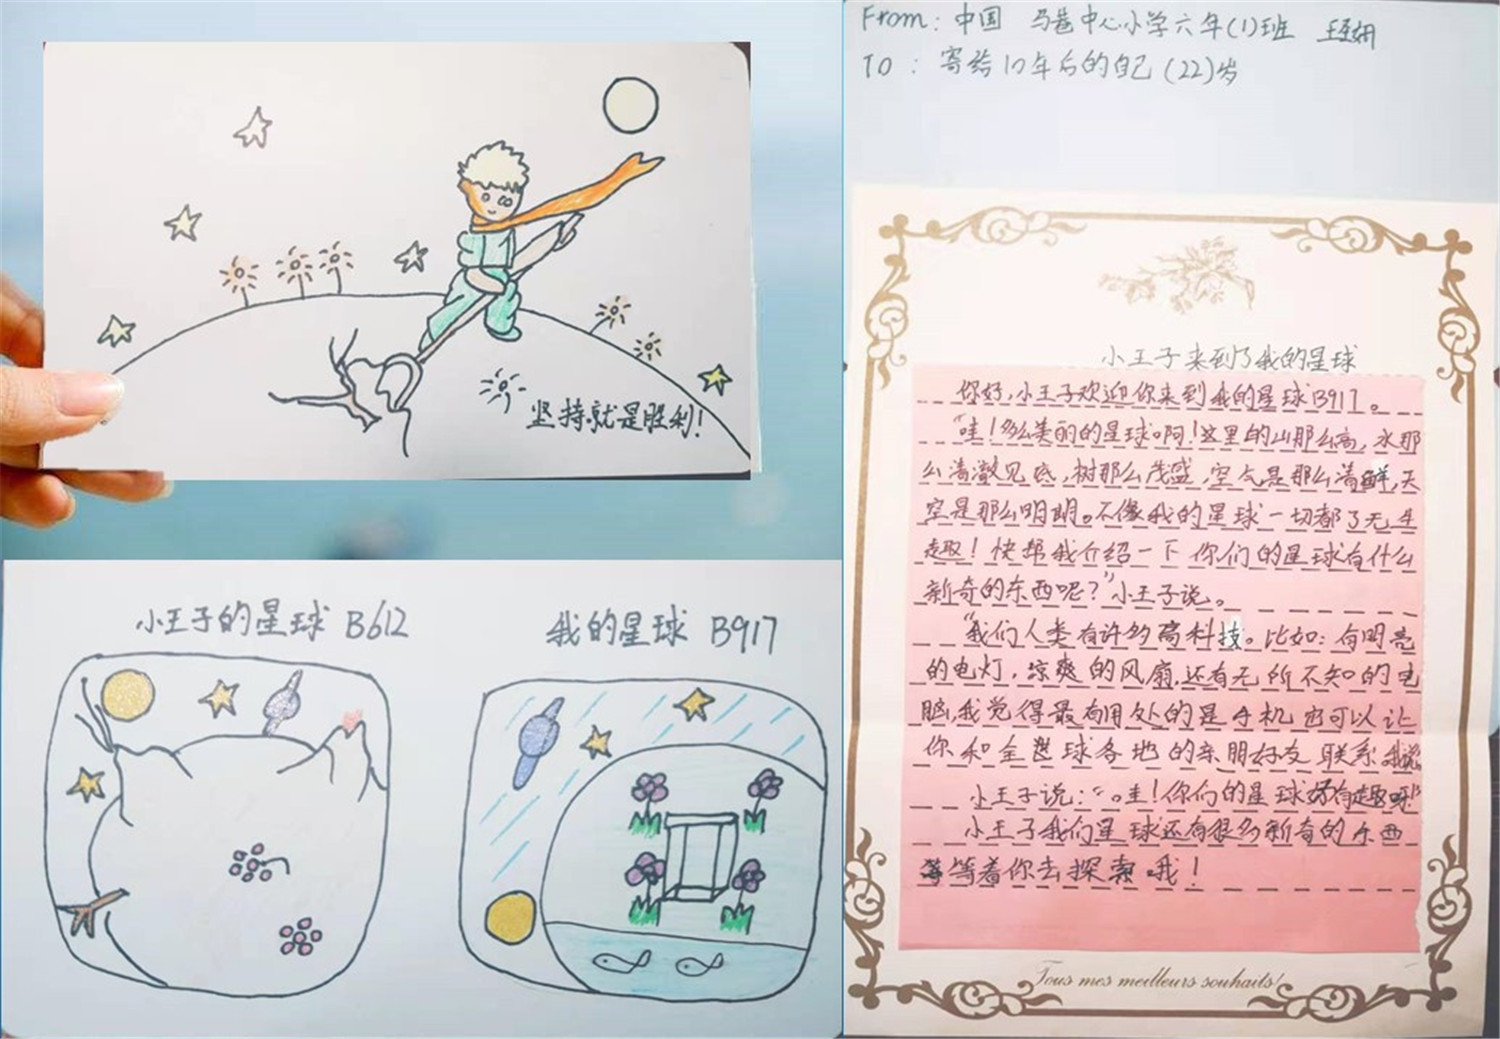 坚持就是胜利!
小王子的星球 B612
我的星球 B917
From: 中国 马巷中心小学六年(1)班
To : 寄给10年后的自己(22)岁
小王子来到了我的星球
你好,小王子欢迎你来到我的星球B917。
"哇!多么美丽的星球啊!这里的山那么高,水那
么清澈见底,树那么茂盛,空气是那么清鲜,天
空是那么明朗。不像我的星球一切都了无生
趣!快帮我介绍一下你们的星球有什么
新奇的东西呢?"小王子说。
"我们人类有许多高科技。比如:有明亮
的电灯,凉爽的风扇,还有无所不知的电
脑,我觉得最有用处的是手机也可以让
你和全世球各地的亲朋好友联系"我说
小王子说:"哇!你们的星球好有趣呀!"
小王子我们星球还有很多新奇的东西
等着你去探索哦!
Tous mes meilleurs souhaits!